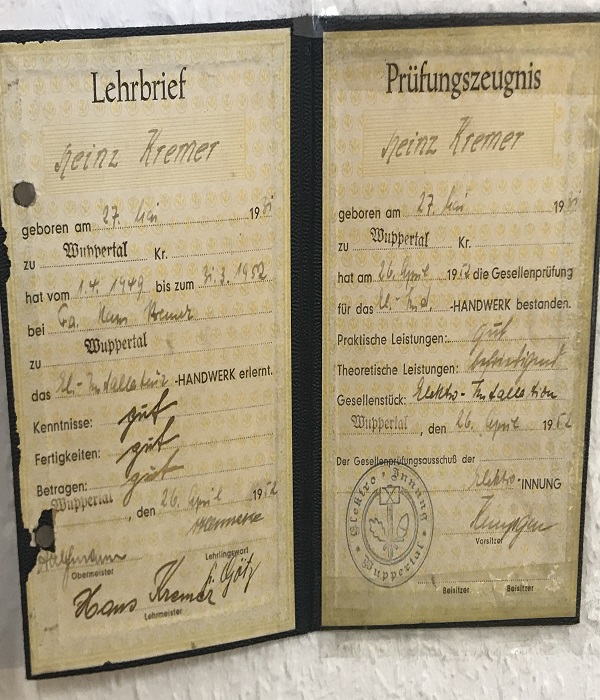 Lehrbrief
Heinz Kremer
geboren am 27. Mai 19
zu Wuppertal Kr.
hat vom 1.4. 1949 bis zum 31.3.1952
bei Fa. Hans Kremer
zu Wuppertal
das El.-Installateur -HANDWERK erlernt.
Kenntnisse: gut
Fertigkeiten: gut
Betragen: gut
Wuppertal, den 26. April 1952
Obermeister
Lehrlingswart
Hans Kremer
Lehrmeister
Prüfungszeugnis
Heinz Kremer
geboren am 27. Mai 19
zu Wuppertal Kr.
hat am 26. April 1952 die Gesellenprüfung
für das El.-Inst. -HANDWERK bestanden.
Praktische Leistungen: gut
Theoretische Leistungen:
Gesellenstück: Elektro-Installation
Wuppertal, den 26. April 1952
Der Gesellenprüfungsausschuß der
Elektro-INNUNG
Elektro-Innung
Wuppertal
Vorsitzer
Beisitzer Beisitzer